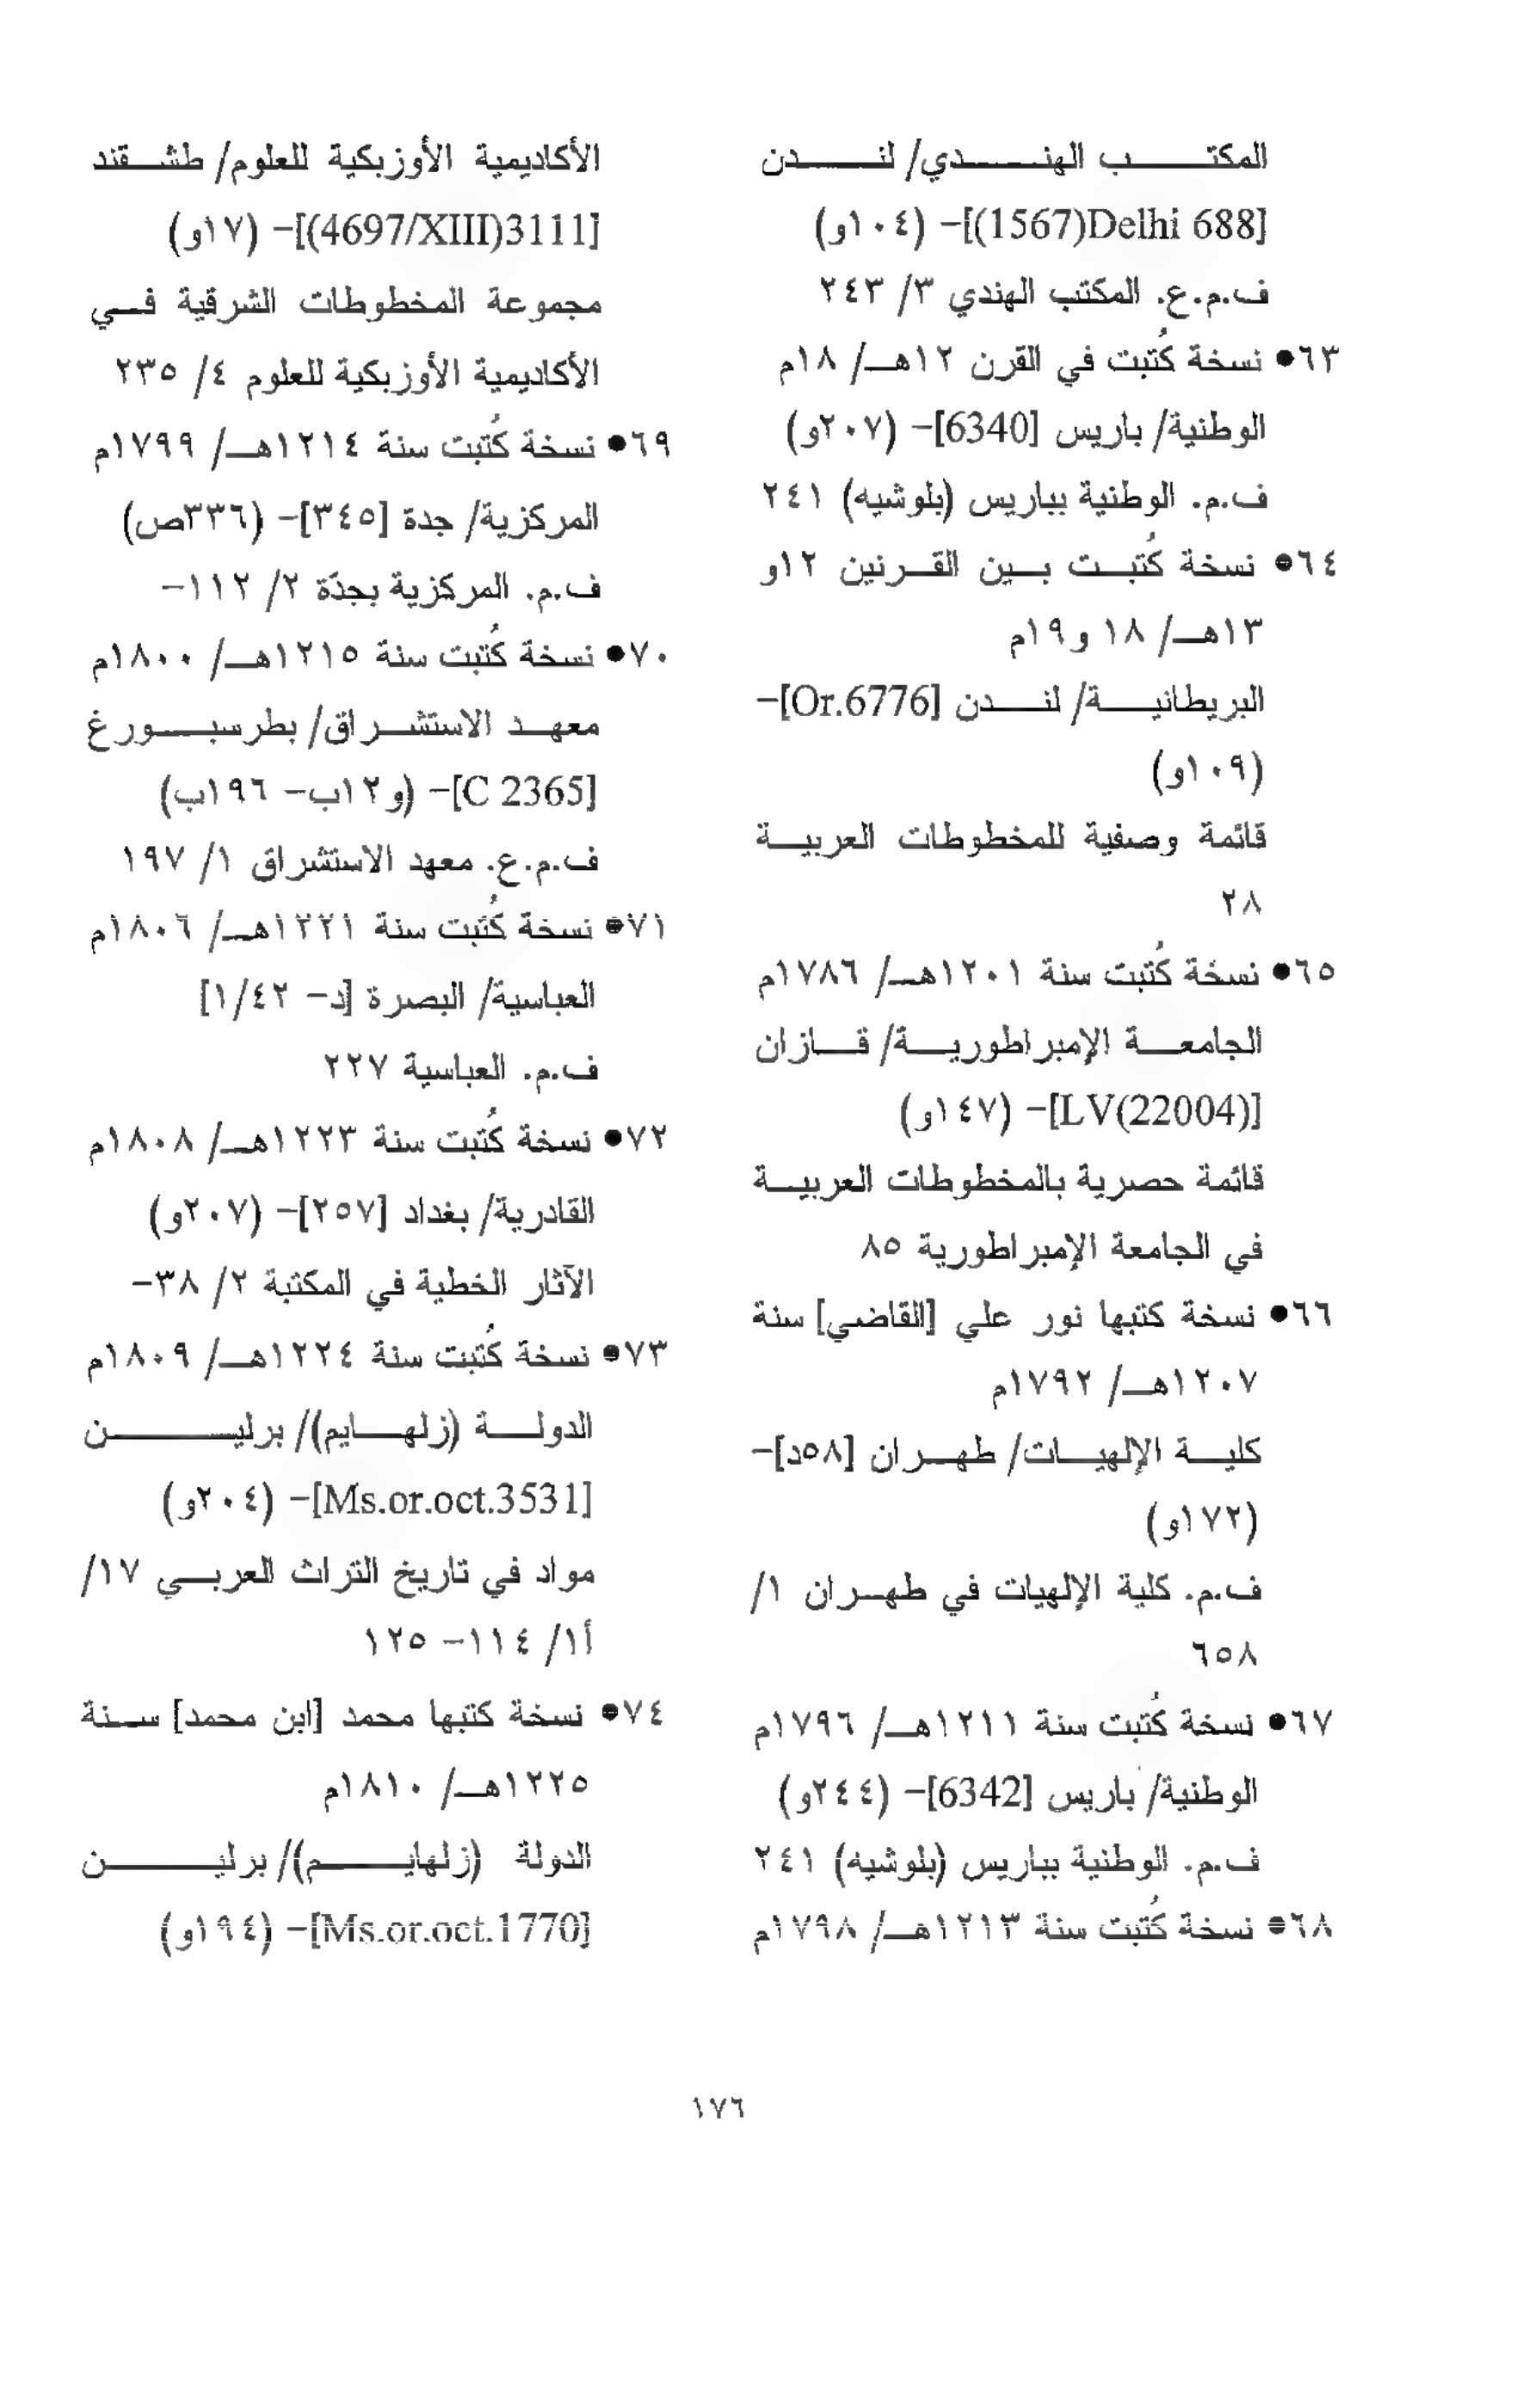 المكتب الهندي/ لندن
[Delhi 688(1567)]- (١٠٤و)
ف.م.ع. المكتب الهندي ٣/ ٢٤٣
٦٣• نسخة كُتبت في القرن ١٢هـ/ ١٨م
الوطنية/ باريس [6340]- (٢٠٧و)
ف.م. الوطنية بباريس (بلوشيه) ٢٤١
٦٤• نسخة كُتبت بين القرنين ١٢و
١٣هـ/ ١٨ و١٩م
البريطانية/ لندن [Or.6776]-
(١٠٩و)
قائمة وصفية للمخطوطات العربية
٢٨
٦٥• نسخة كُتبت سنة ١٢٠١هـ/ ١٧٨٦م
الجامعة الإمبراطورية/ قازان
[LV(22004)]- (١٤٧و)
قائمة حصرية بالمخطوطات العربية
في الجامعة الإمبراطورية ٨٥
٦٦• نسخة كتبها نور علي [القاضي] سنة
١٢٠٧هـ/ ١٧٩٢م
كلية الإلهيات/ طهران [٥٨د]-
(١٧٢و)
ف.م. كلية الإلهيات في طهران ١/
٦٥٨
٦٧• نسخة كُتبت سنة ١٢١١هـ/ ١٧٩٦م
الوطنية/ باريس [6342]- (٢٤٤و)
ف.م. الوطنية بباريس (بلوشيه) ٢٤١
٦٨• نسخة كُتبت سنة ١٢١٣هـ/ ١٧٩٨م
الأكاديمية الأوزبكية للعلوم/ طشقند
[3111(4697/XIII)]- (١٧و)
مجموعة المخطوطات الشرقية في
الأكاديمية الأوزبكية للعلوم ٤/ ٢٣٥
٦٩• نسخة كُتبت سنة ١٢١٤هـ/ ١٧٩٩م
المركزية/ جدة [٣٤٥]- (٣٣٦ص)
ف.م. المركزية بجدّة ٢/ ١١٢-
٧٠• نسخة كُتبت سنة ١٢١٥هـ/ ١٨٠٠م
معهد الاستشراق/ بطرسبورغ
[C 2365]- (و١٢ب- ١٩٦ب)
ف.م.ع. معهد الاستشراق ١/ ١٩٧
٧١• نسخة كُتبت سنة ١٢٢١هـ/ ١٨٠٦م
العباسية/ البصرة [د- ١/٤٢]
ف.م. العباسية ٢٢٧
٧٢• نسخة كُتبت سنة ١٢٢٣هـ/ ١٨٠٨م
القادرية/ بغداد [٢٥٧]- (٢٠٧و)
الآثار الخطية في المكتبة ٢/ ٣٨-
٧٣• نسخة كُتبت سنة ١٢٢٤هـ/ ١٨٠٩م
الدولة (زلهايم)/ برلين
[Ms.or.oct.3531]- (٢٠٤و)
مواد في تاريخ التراث العربي ١٧/
أ١/ ١١٤- ١٢٥
٧٤• نسخة كتبها محمد [ابن محمد] سنة
١٢٢٥هـ/ ١٨١٠م
الدولة (زلهايم)/ برلين
[Ms.or.oct.1770]- (١٩٤و)
١٧٦